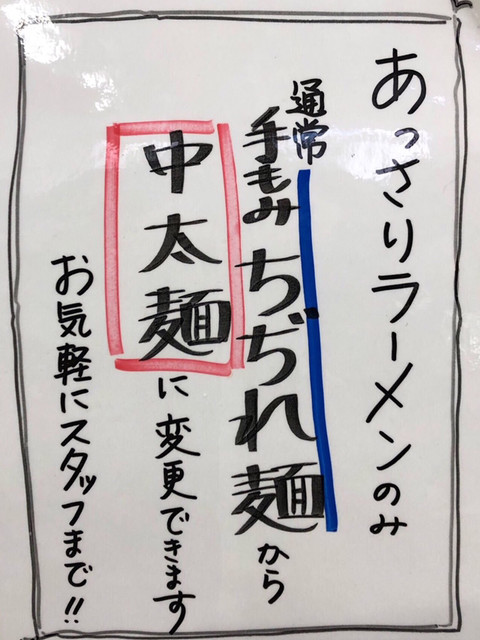 あっさりラーメンのみ
通常
手もみちぢれ麺から
中太麺に変更できます
お気軽にスタッフまで!!